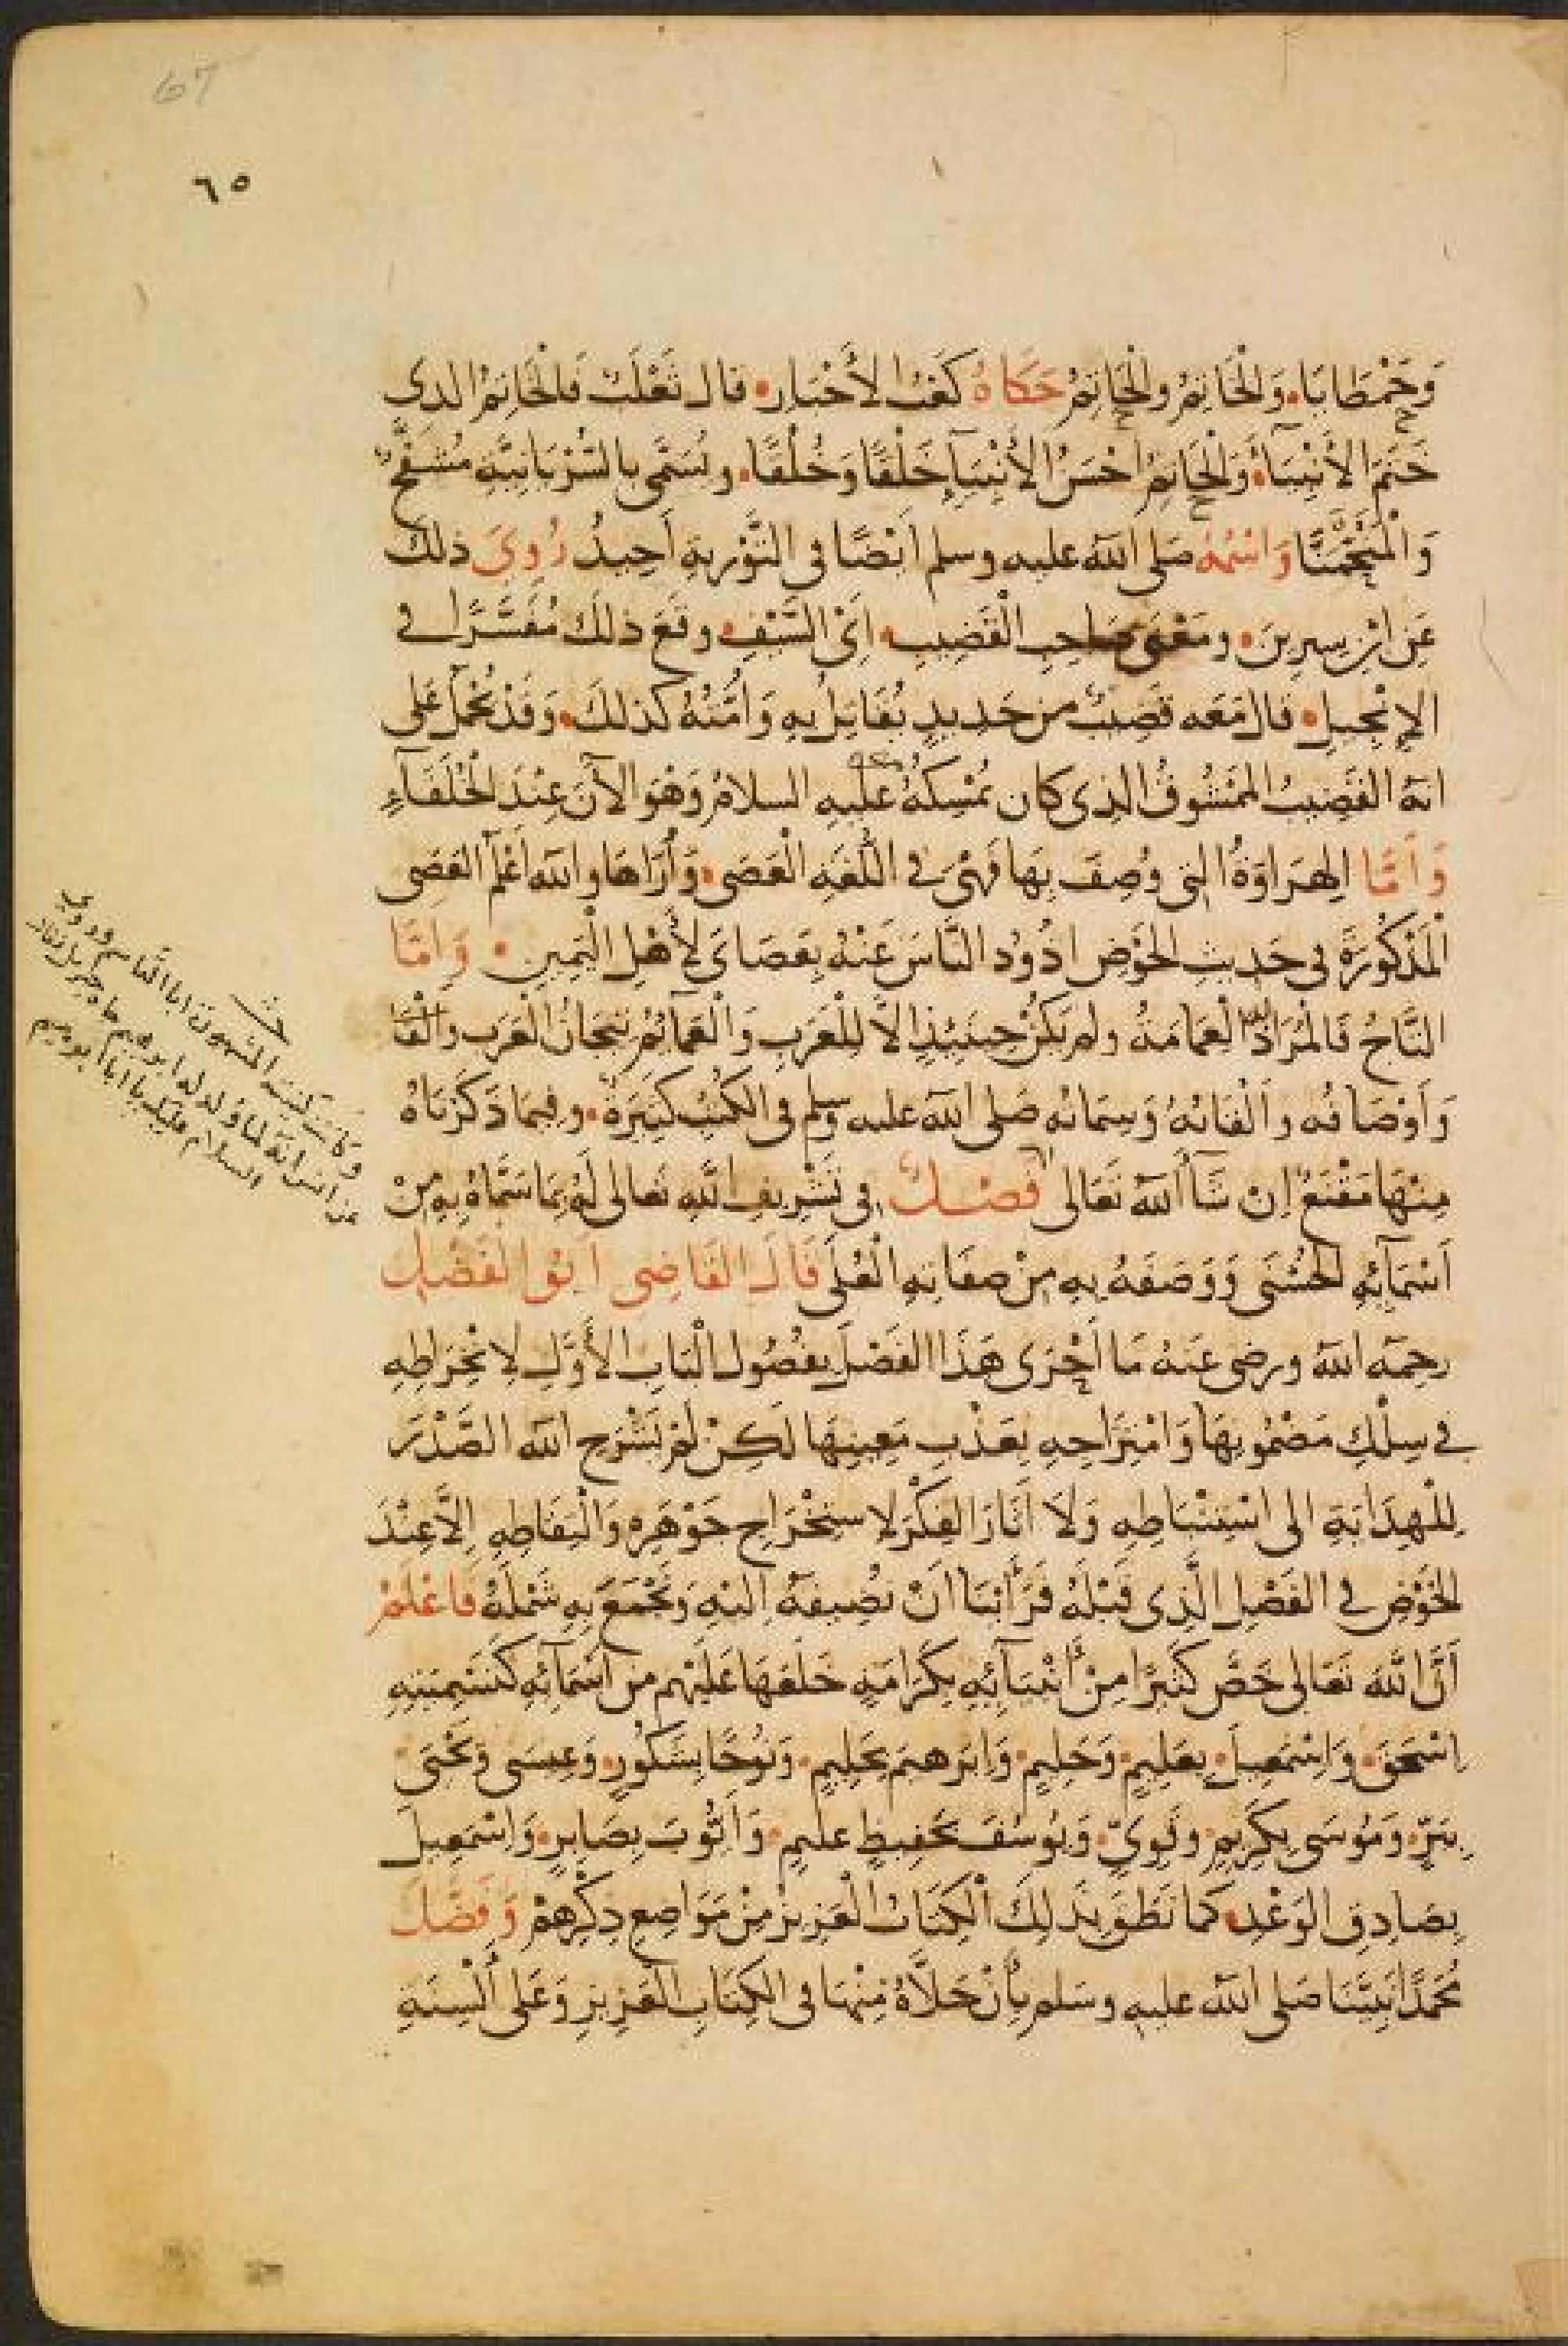 67
٦٥
وَحَمْطَايَا، وَالْخَاتِمُ والْحَاتِمُ حَكَاهُ كَعْبُ الأَحْبَارِ، قال ثَعْلَبٌ فالْخَاتِمُ الذى
خَتَمَ الأنْبِيَآءَ، وَالْحَاتِمُ أحْسَنُ الأنْبِيَآءِ خَلْقًا وَخُلْقًا، ويُسَمَّى بالسُّرْيَانِيَّةِ مُشَفَّحٌ
وَالْمُنْحَمِنَّا وَاسْمُهُ صَلى الله عليه وسلم أيْضًا فى التَّوْرَيةِ أُحِيدُ رُوِيَ ذلك
عَنِ ابْنِ سِرِينَ، ومَعْنَى صَاحِبِ الْقَضِيبِ، أىِ السَّيْفِ، وقَعَ ذلكَ مُفَسَّرًا فى
الإنْجِيلِ، قال مَعَه قَضِيبٌ من حَدِيدٍ يُقَاتِلُ بِهِ وَأمَّتُهُ كذلكَ، وَقَدْ يُحْمَلُ على
انه القَضِيبُ المَمْشُوقُ الذى كان يُمْسِكُهُ عليه السلامُ وَهْوَ الآنَ عِنْدَ الْخُلَفَآءِ
وَأمَّا الهِرَاوَةُ التى وُصِفَ بِهَا فَهْىَ فى اللُّغَةِ الْعَصَى، وَأُرَاهَا والله أعْلَمُ العَصَى
الْمَذْكُورَةَ فى حَدِيثِ الْحَوْضِ اذُودُ النَّاسَ عَنْهُ بِعَصَاىَ لِأَهْلِ الْيَمِينِ، وَامَّا
التَّاجُ فَالمُرَادُ بِهِ الْعِمَامَةُ ولم يَكُنْ حِينَئِذٍ الاَّ لِلْعَرَبِ وَالْعَمَآئِمُ تِيجَانُ الْعَرَبِ
وَأوْصَافُه وألْقَابُهُ وَسِمَاتُه صَلى الله عليه وسلم فى الكُتُبِ كَثِيَرةٌ، وفيمَا ذَكَرْنَاهُ
مِنْهَا مَقْنَعٌ إن شَآءَ اللهُ تَعَالى فَصْلٌ فى تَشْرِيفِ اللهِ تَعَالى لَهُ بِمَا سَمَّاهُ بِهِ مِنْ
أَسْمَآئِهِ الْحُسْنَى وَوَصَفَهُ بِهِ مِنْ صِفَاتِهِ الْعُلَى قَالَ القَاضِى أبُو الْفَضْلِ
رحِمَه الله ورضى عَنهُ مَا أحْرَى هَذَا الفَصْلَ بِفُصُولِ الْبَابِ الأوَّلِ لِانْخِرَاطِهِ
فى سِلْكِ مَضْمُونِهَا وَامْتِزَاجِهِ بِعَذْبِ مَعِينِهَا لَكِنْ لَمْ يَشْرَحِ الله الصَّدْرَ
لِلْهِدَايَةِ الى اسْتِنْبَاطِهِ وَلاَ أنَارَ الفِكْرَ لاستِخْرَاجِ جَوْهَرِهِ وَالْتِقَاطِهِ إلاَّ عِنْدَ
الخَوْضِ فى الفَصْلِ الَّذِى قَبْلَهُ فَرَأيْنَا أنْ نُضِيفَهُ الَيْهِ وَنَجْمَعَ بِهِ شَمْلَهُ فَاعْلَمْ
أنَّ اللهَ تَعَالى خَصَّ كَثيرًا مِنْ أنْبِيَآئِهِ بِكَرَامَةٍ خَلَعَهَا عَلَيْهم من أسْمَآئِهِ كَتَسْمِيَتِهِ
اسْحَقَ، وَاسْمَعِيلَ، بِعَلِيمٍ، وَحَلِيمٍ، وَابْرَهيمَ بِحَلِيمٍ، وَنُوحًا بِشَكُورٍ، وَعِيسَى وَيَحْيَى
بِبَرٍّ، وَمُوسَى بِكَرِيمٍ، وقَوِيٍّ، وَيُوسُفَ بِحَفِيظٍ عليمٍ، وَأيُّوبَ بِصَابِرٍ، وَاسْمَعِيلَ
بِصَادِقِ الوَعْدِ، كما نَطَقَ بِذَلِكَ الْكِتَابُ الْعَزِيزُ مِنْ مَوَاضِعِ ذِكْرِهِمْ وَفَضَّلَ
مُحَمَّدًا نَبِيَّنَا صَلى الله عليه وسَلم بِأنْ حَلاَّهُ مِنْهَا فى الكِتَابِ الْعَزِيزِ وَعَلى ألْسِنَةِ
وكانت كنيته المشهورة ابا القاسم وروى
عن انس انه لما ولد له ابرهيم جاه جبريل فقال
السلام عليك يا ابا ابرهيم